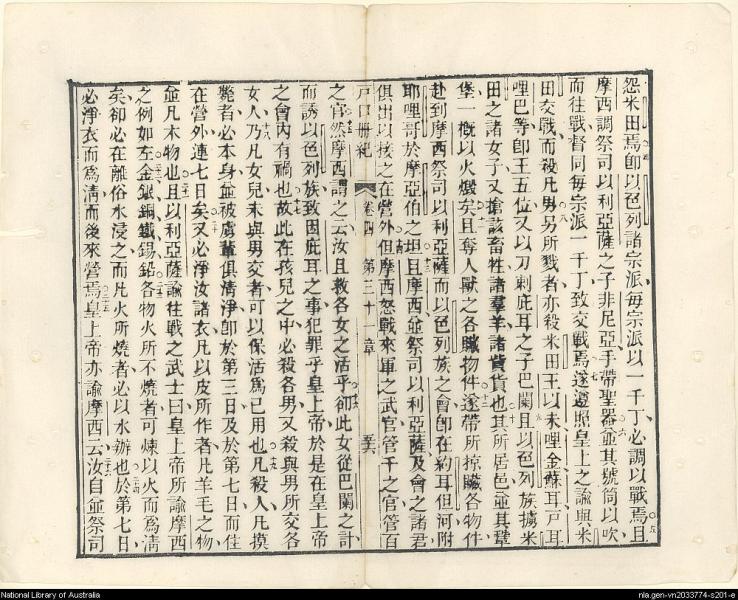 怨米田焉卽以色列諸宗派每宗派以一千丁必調以戰焉且
摩西調祭司以利亞薩之子非尼亞手帶聖器並其號筒以吹
而往戰督同每宗派一千丁致交戰焉遂遵照皇上之諭與米
田交戰而殺凡男另所戮者亦殺米田王以未哩金蘇耳戸耳
哩巴等卽王五位又以刀刺庇耳之子巴闌且以色列族擄米
田之諸女子又搶該畜牲諸羣羊諸貨貨也其所居邑並其
堡一槪以火燬矣且奪人獸之各贓物件遂帶所掠贓各物件
赴到摩西祭司以利亞薩而以色列族之會卽在約耳但河附
耶哩哥於摩亞伯之坦且摩西並祭司以利亞薩及會之諸君
俱出以接之在營外但摩西怒戰來軍之武官管千之官管百
戸口冊紀 卷四 第三十一章
之官然摩西謂之云汝且救各女之活乎卻此女從巴闌之計
而誘以色列族致因庇耳之事犯罪乎皇上帝於是在皇上帝
之會內有禍也故此在孩兒之中必殺各男又殺與男所交各
女人乃凡女兒未與男交者可以保活爲己用也凡殺人凡摸
斃者必本身並被虜輩俱清淨卽於第三日及於第七日而住
在營外連七日矣又必淨汝諸衣凡以皮所作者凡羊毛之物
並凡木物也且以利亞薩諭往戰之武士曰皇上帝所諭摩西
之例如左金銀銅鐵錫鉛各物火所不燒者可煉以火而爲清
矣卻必在離俗水浸之而凡火所燒者必以水辦也於第七日
必淨衣而爲清而後來營焉皇上帝亦諭摩西云汝自並祭司
National Library of Australia
nla.gen-vn2033774-s201-e